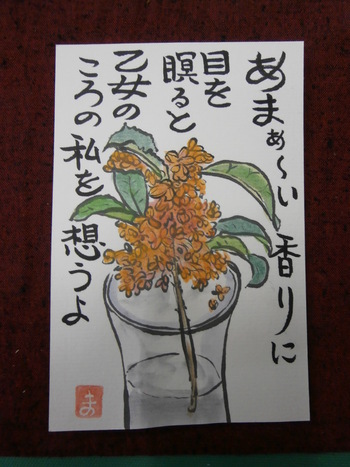 あまぁ～い香りに
目を
瞑ると
乙女の
ころの私を想うよ
ま